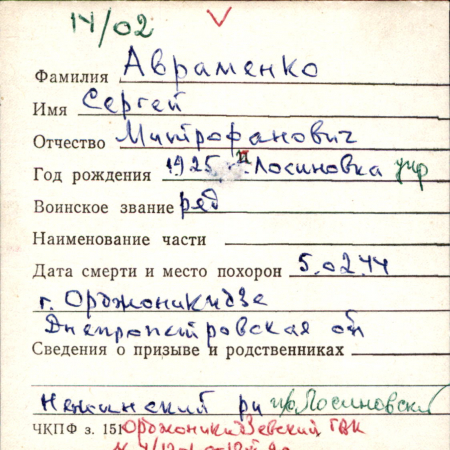 14/02
Фамилия Авраменко
Имя Сергей
Отчество Митрофанович
Год рождения 1925 Лосиновка умр
Воинское звание ряд
Наименование части
Дата смерти и место похорон 5.02.44
г. Орджоникидзе
Днепропетровская об
Сведения о призыве и родственниках
Нежинский р-н Лосиновский
ЧКПФ з. 151 Орджоникидзевский ГВК